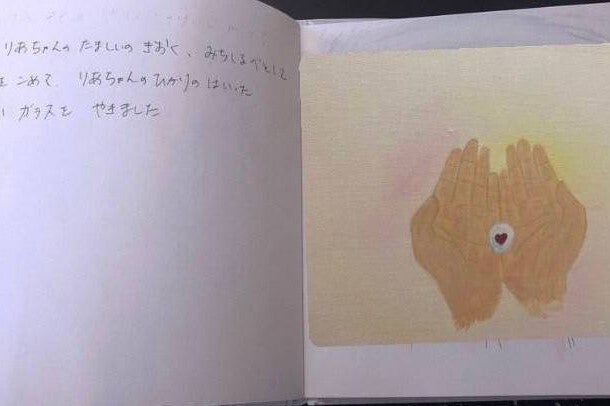 りあちゃんの たましいの きおく、みちしるべとして
をこめて、りあちゃんのひかりの はいった
いガラスを やきました